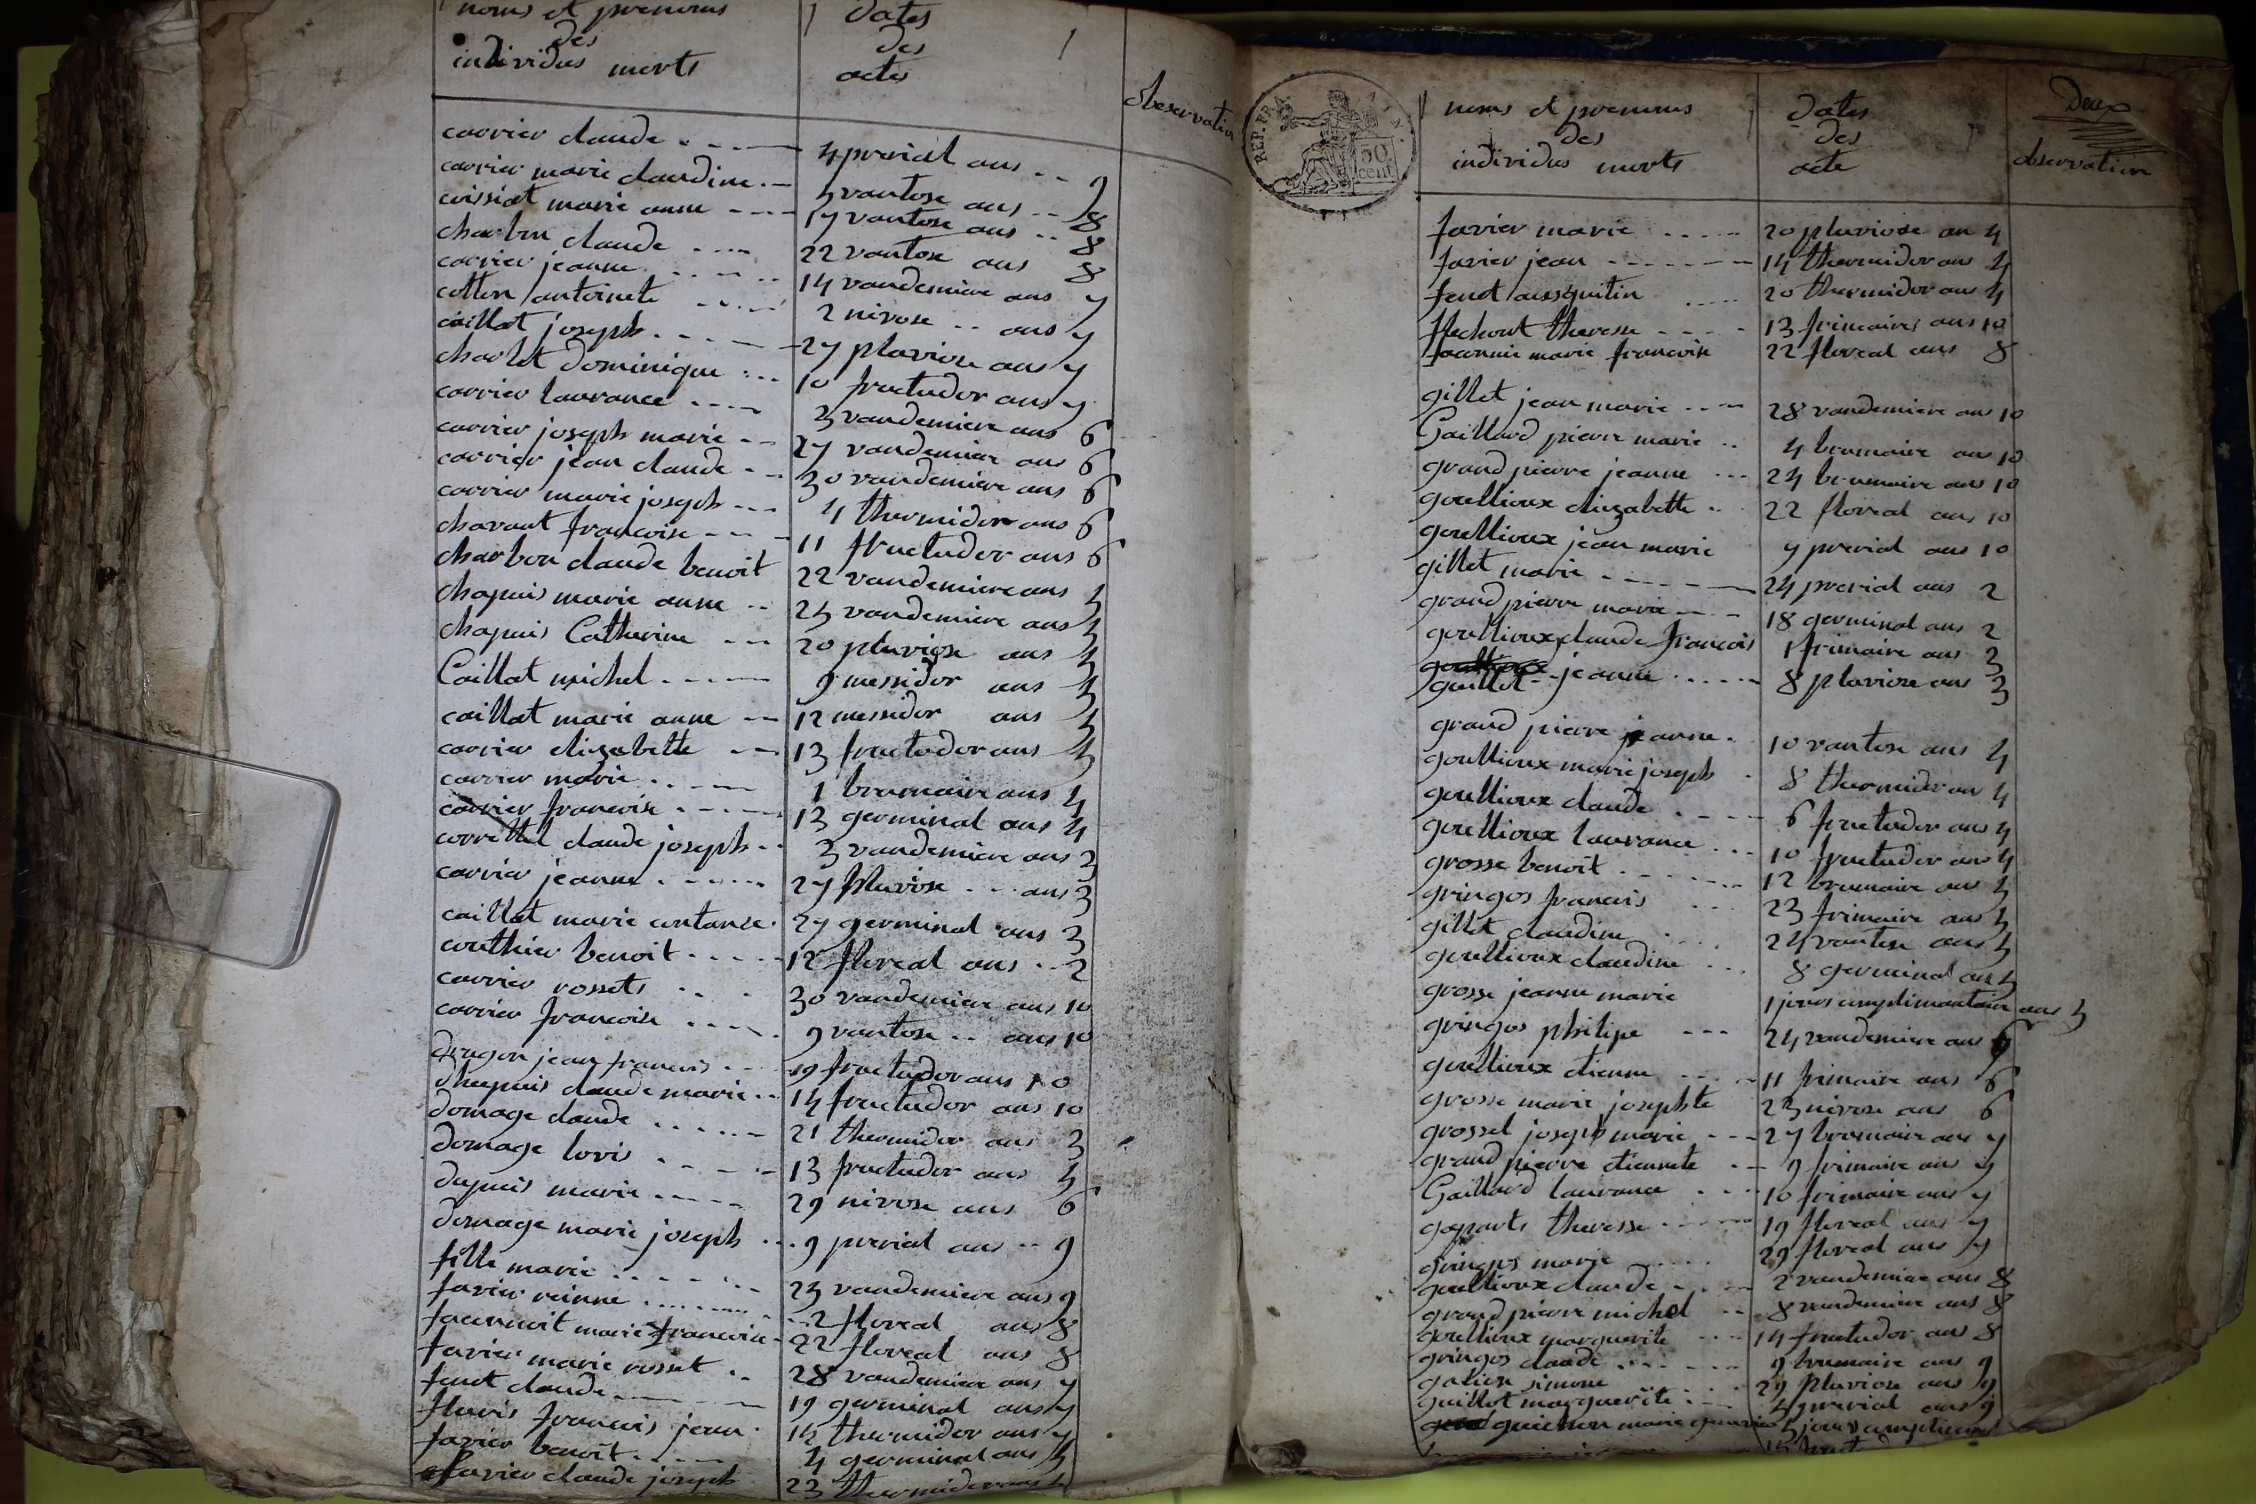 noms et prenoms
des
individus morts
dates
des
actes
observation
carrier claude 4 prerial ans 9
carrier marie claudine 5 vantose ans 8
cuissiat marie anne 17 vantose ans 8
charbon claude 22 vantose ans 8
carrier jeanne 14 vandemiere ans 7
cotton antoinete 2 nivose ans 7
caillat joseph 27 pluviose ans 7
charlet dominique 10 fructudor ans 7
carrier laurance 3 vandemiere ans 6
carrier joseph marie 27 vandemiere ans 6
carrier jean claude 30 vandemiere ans 6
carrier marie joseph 4 thermidor ans 6
chavant francoise 11 fructudor ans 6
charbon claude benoit 22 vandemiere ans 5
chapuis marie anne 25 vandemiere ans 5
chapuis Catherine 20 pluviose ans 5
Caillat michel 9 messidor ans 5
caillat marie anne 12 messidor ans 5
carrier elizabette 13 fructudor ans 5
carrier marie 1 brumaire ans 4
carrier francoise 13 germinal ans 4
correttel claude joseph 3 vandemiere ans 3
carrier jeanne 27 pluviose ans 3
caillat marie contance 27 germinal ans 3
couthier benoit 12 floreal ans 2
carrier rossete 30 vandemiere ans 10
carrier francoise 9 vantose ans 10
dragon jean francois 19 fructudor ans 10
dhepuis claude marie 14 fructudor ans 10
domage claude 21 thermidor ans 3
domage lovis 13 fructudor ans 5
dupuis marie 29 nivose ans 6
domage marie joseph 9 prerial ans 9
fille marie 25 vandemiere ans 9
favier reinne 2 floreal ans 8
facernoit marie francoise 22 floreal ans 8
favier marie rosset 28 vandemiere ans 7
fenet claude 19 germinal ans 7
fluris francois jean 14 thermidor ans 7
favier benoit 4 germinal ans 5
favier claude joseph 23 thermidor ans 5
REP. FRA.
50
cent
noms et prenoms
des
individus morts
dates
des
acte
Deux
observation
favier marie 20 pluviose an 4
favier jean 14 thermidor ans 4
fenet 20 thermidor ans 4
flechout theresse 13 frimaire ans 10
marie francoise 22 floreal ans 8
gillet jean marie 28 vandemiere ans 10
Gaillard pierre marie 4 brumaire ans 10
grand pierre jeanne 24 brumaire ans 10
goullioux elizabette 22 floreal ans 10
goullioux jean marie 7 prerial ans 10
gillet marie 24 prerial ans 2
grand pierre marie 18 germinal ans 2
goullioux claude francois 1 frimaire ans 3
goullioux jeanne 8 pluviose ans 3
guillot
grand pierre jeanne 10 vantose ans 4
goullioux marie joseph 8 thermidor an 4
goullioux claude 6 fructudor ans 4
goullioux laurance 10 fructudor ans 4
grosse benoit 12 brumaire ans 5
gringos francois 23 frimaire ans 5
gillet claudine 24 vantose ans 5
goullioux claudine 8 germinal ans 5
grosse jeanne marie 1 jours complimantaire ans 5
gringos philipe 24 vandemiere ans 6
goullioux etienne 11 frimaire ans 6
grosse marie josephte 23 nivose ans 6
grossel joseph marie 27 brumaire ans 7
grand pierre etiennete 9 frimaire ans 7
Gaillard laurance 10 frimaire ans 7
theresse 19 floreal ans 7
gringos marie 29 floreal ans 7
goullioux claude 2 vandemiere ans 8
grand pierre michel 8 vandemiere ans 8
goullioux marguerite 14 fructudor ans 8
gringos claude 9 brumaire ans 9
galien simone 29 pluviose ans 9
guillot marguerite 4 prerial ans 9
guichon marie 5 jours